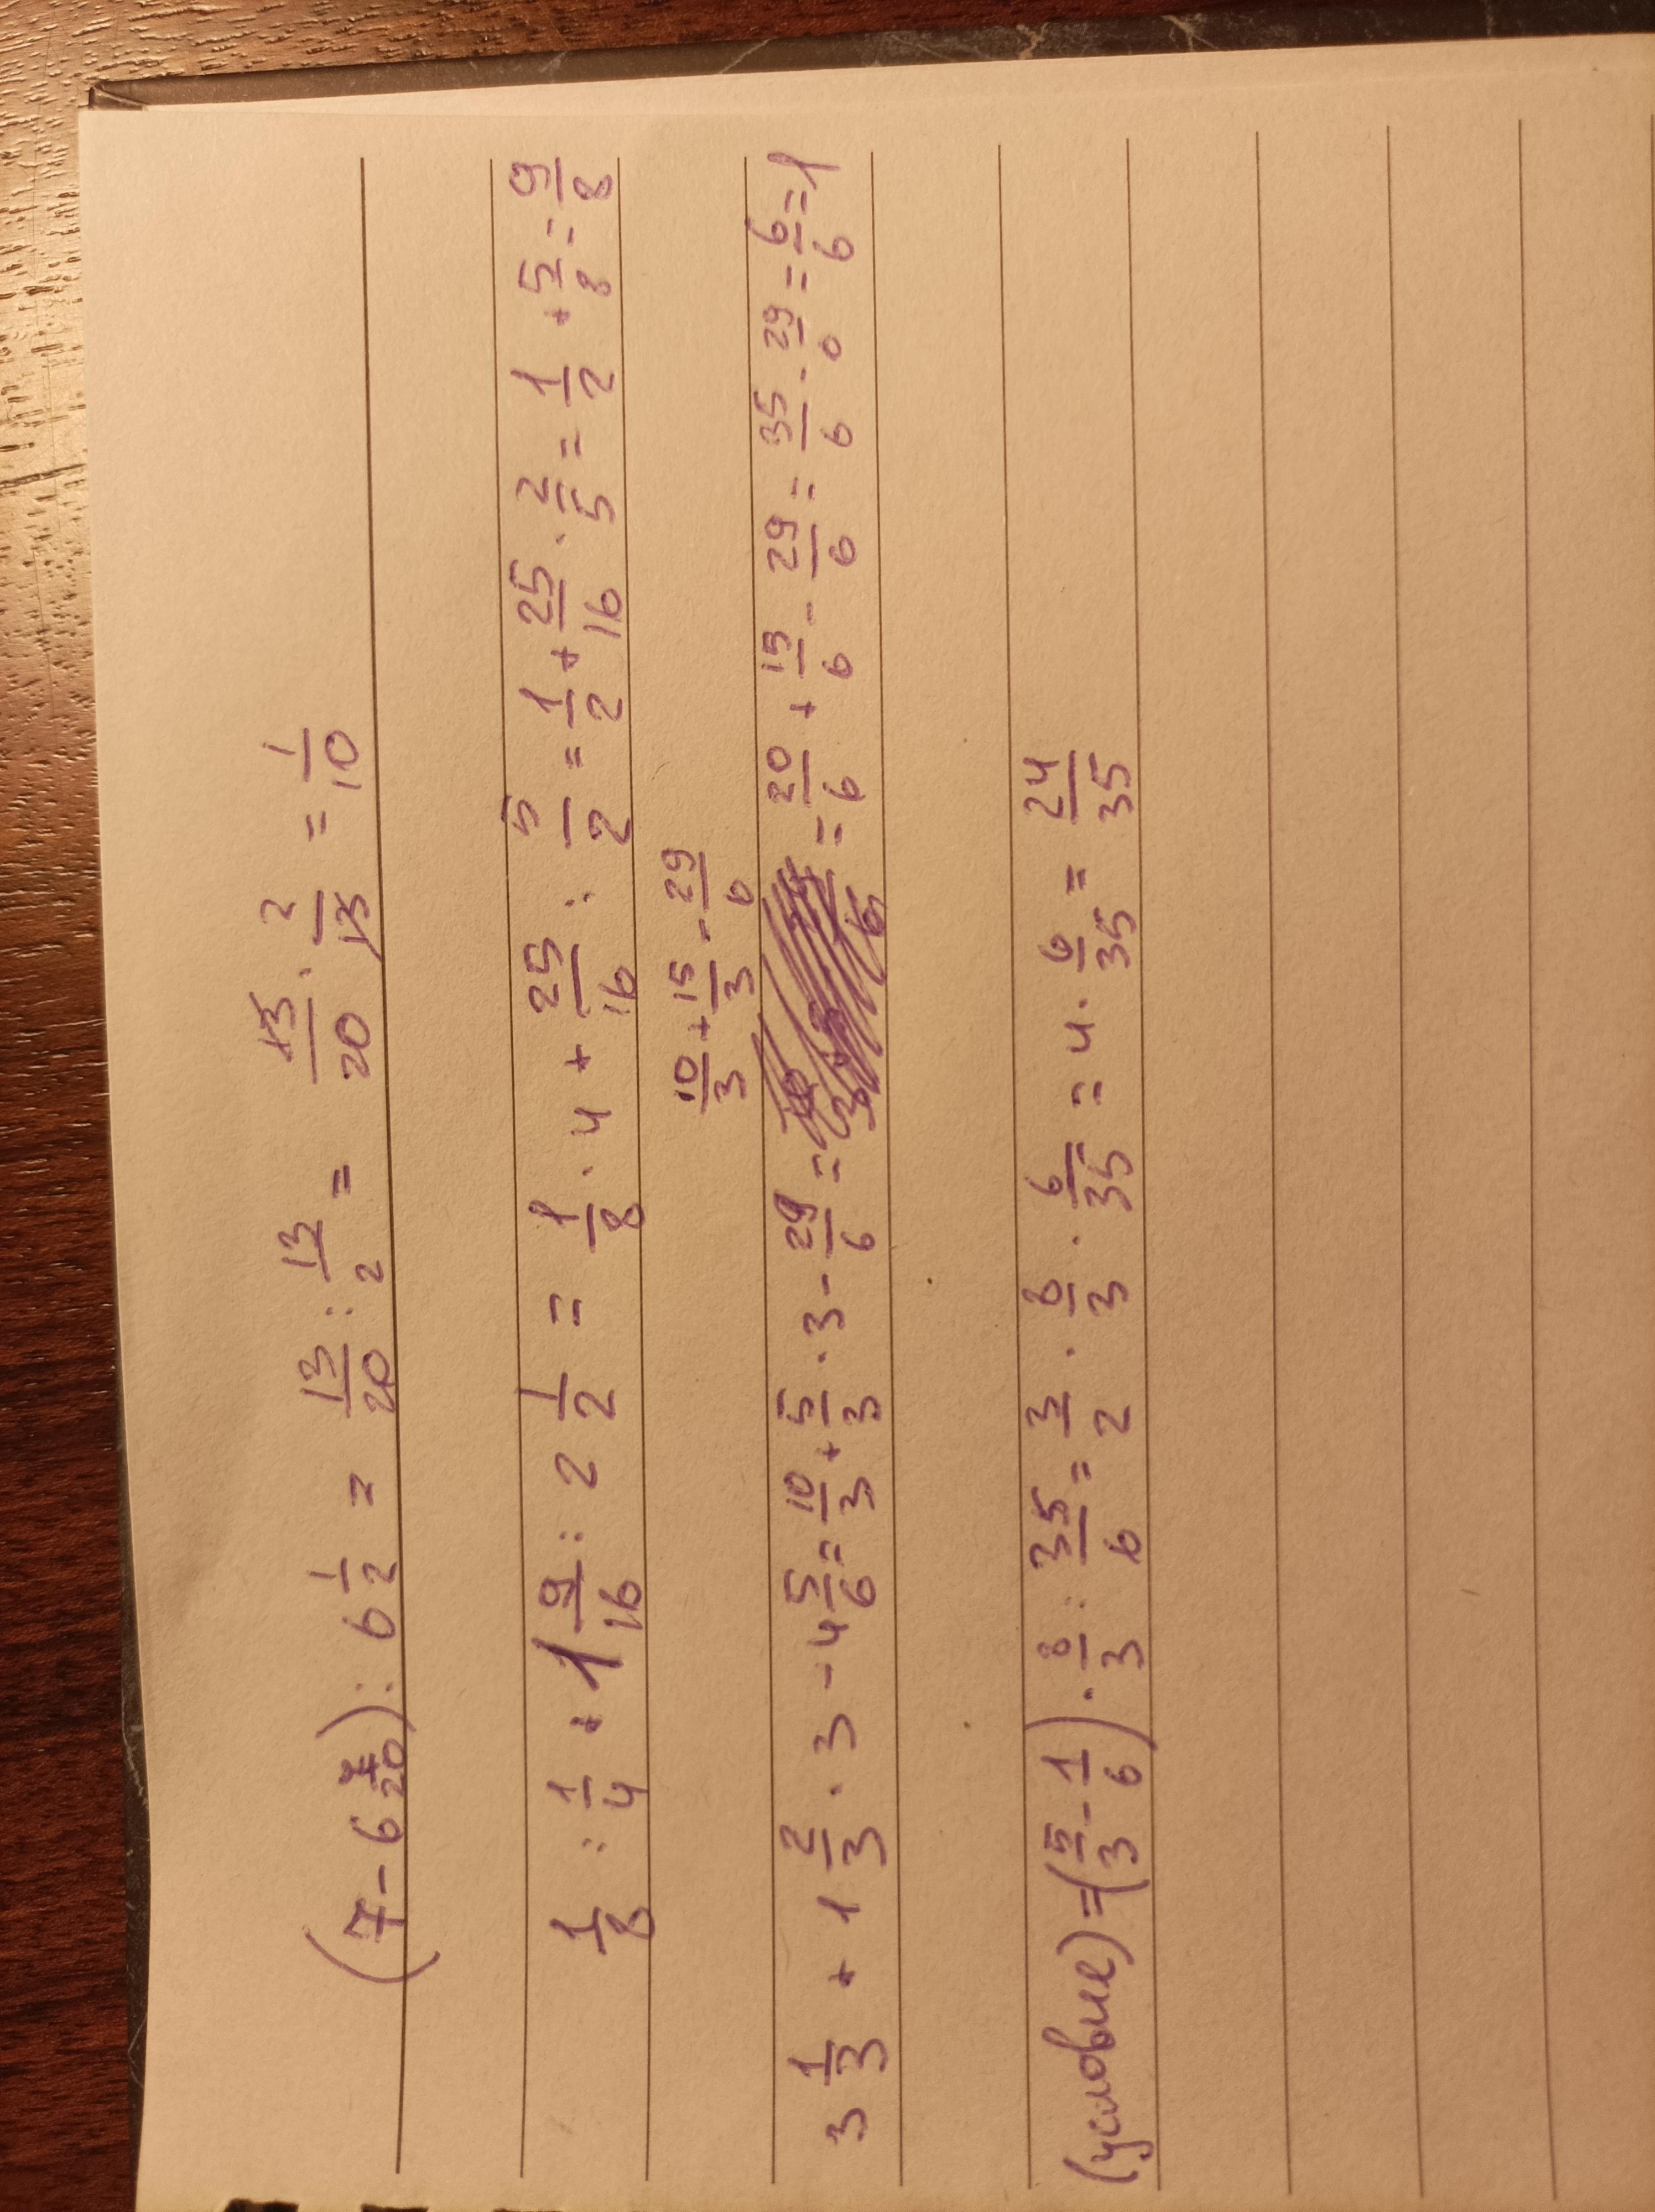 (7 - 6 7/20) : 6 1/2 = 13/20 : 13/2 = 13/20 · 2/13 = 1/10
1/8 : 1/4 + 1 9/16 : 2 1/2 = 1/8 · 4 + 25/16 : 5/2 = 1/2 + 25/16 · 2/5 = 1/2 + 5/8 = 9/8
10/3 + 15/3 - 29/6
3 1/3 + 1 2/3 · 3 - 4 5/6 = 10/3 + 5/3 · 3 - 29/6 = = 20/6 + 15/6 - 29/6 = 35/6 - 29/6 = 6/6 = 1
(условие) = (5/3 - 1/6) · 8/3 : 35/6 = 3/2 · 8/3 · 6/35 = 4 · 6/35 = 24/35